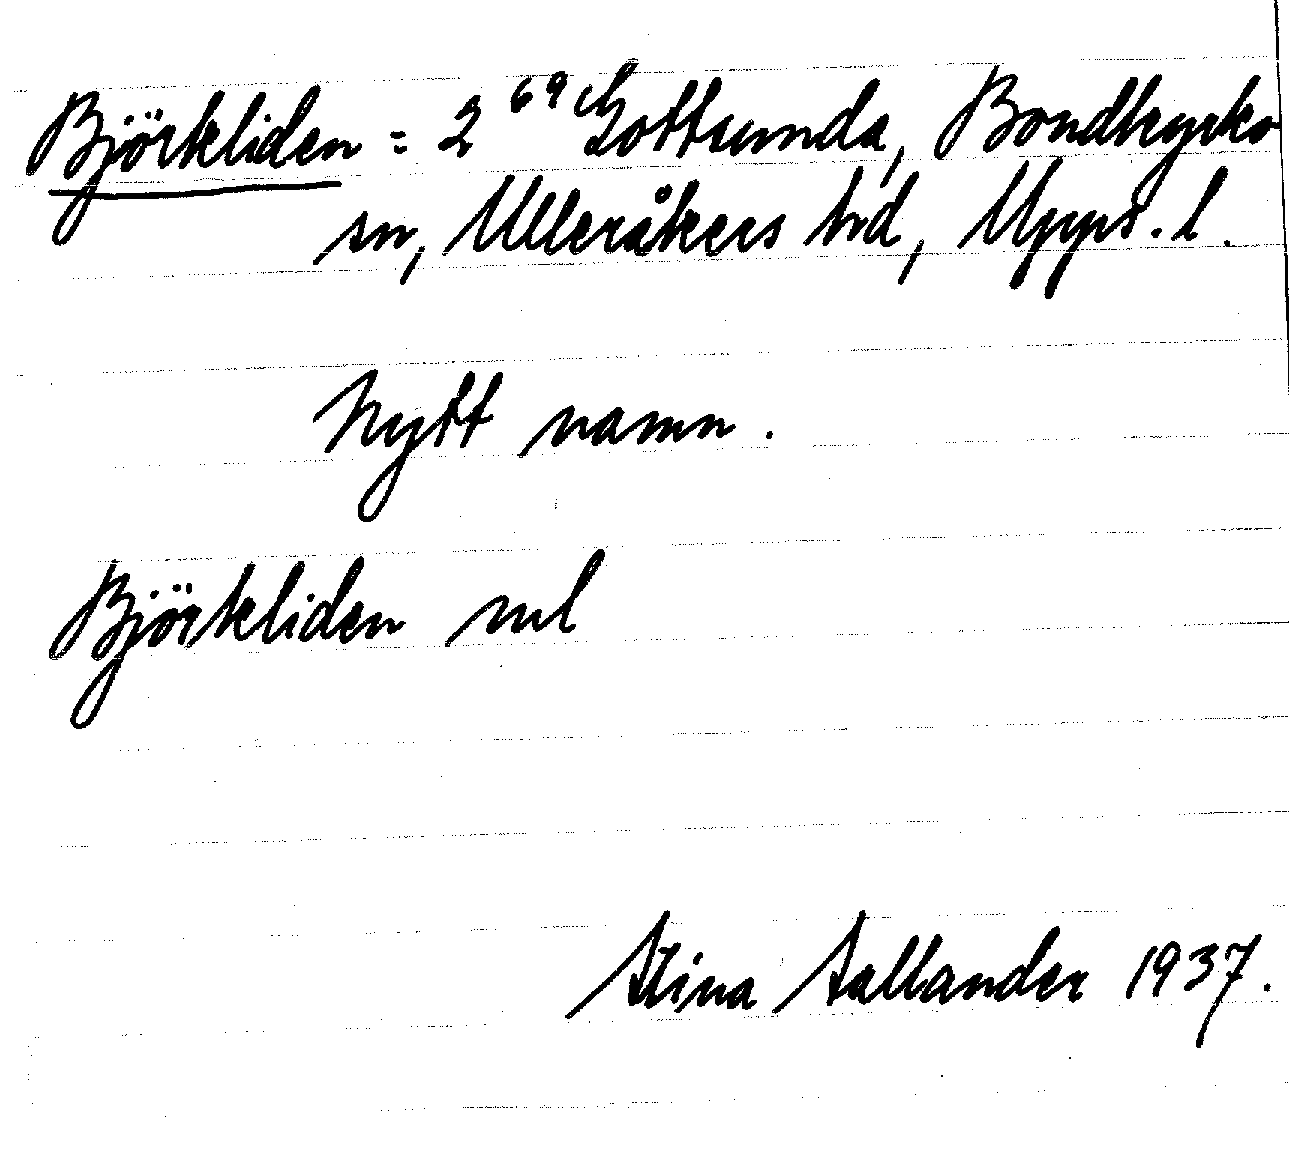 Björkliden = 2 69 Gottsunda, Bondkyrko
sn, Ulleråkers hd, Upps. l.
Nytt namn.
Björkliden ml
Stina Sallander 1937.